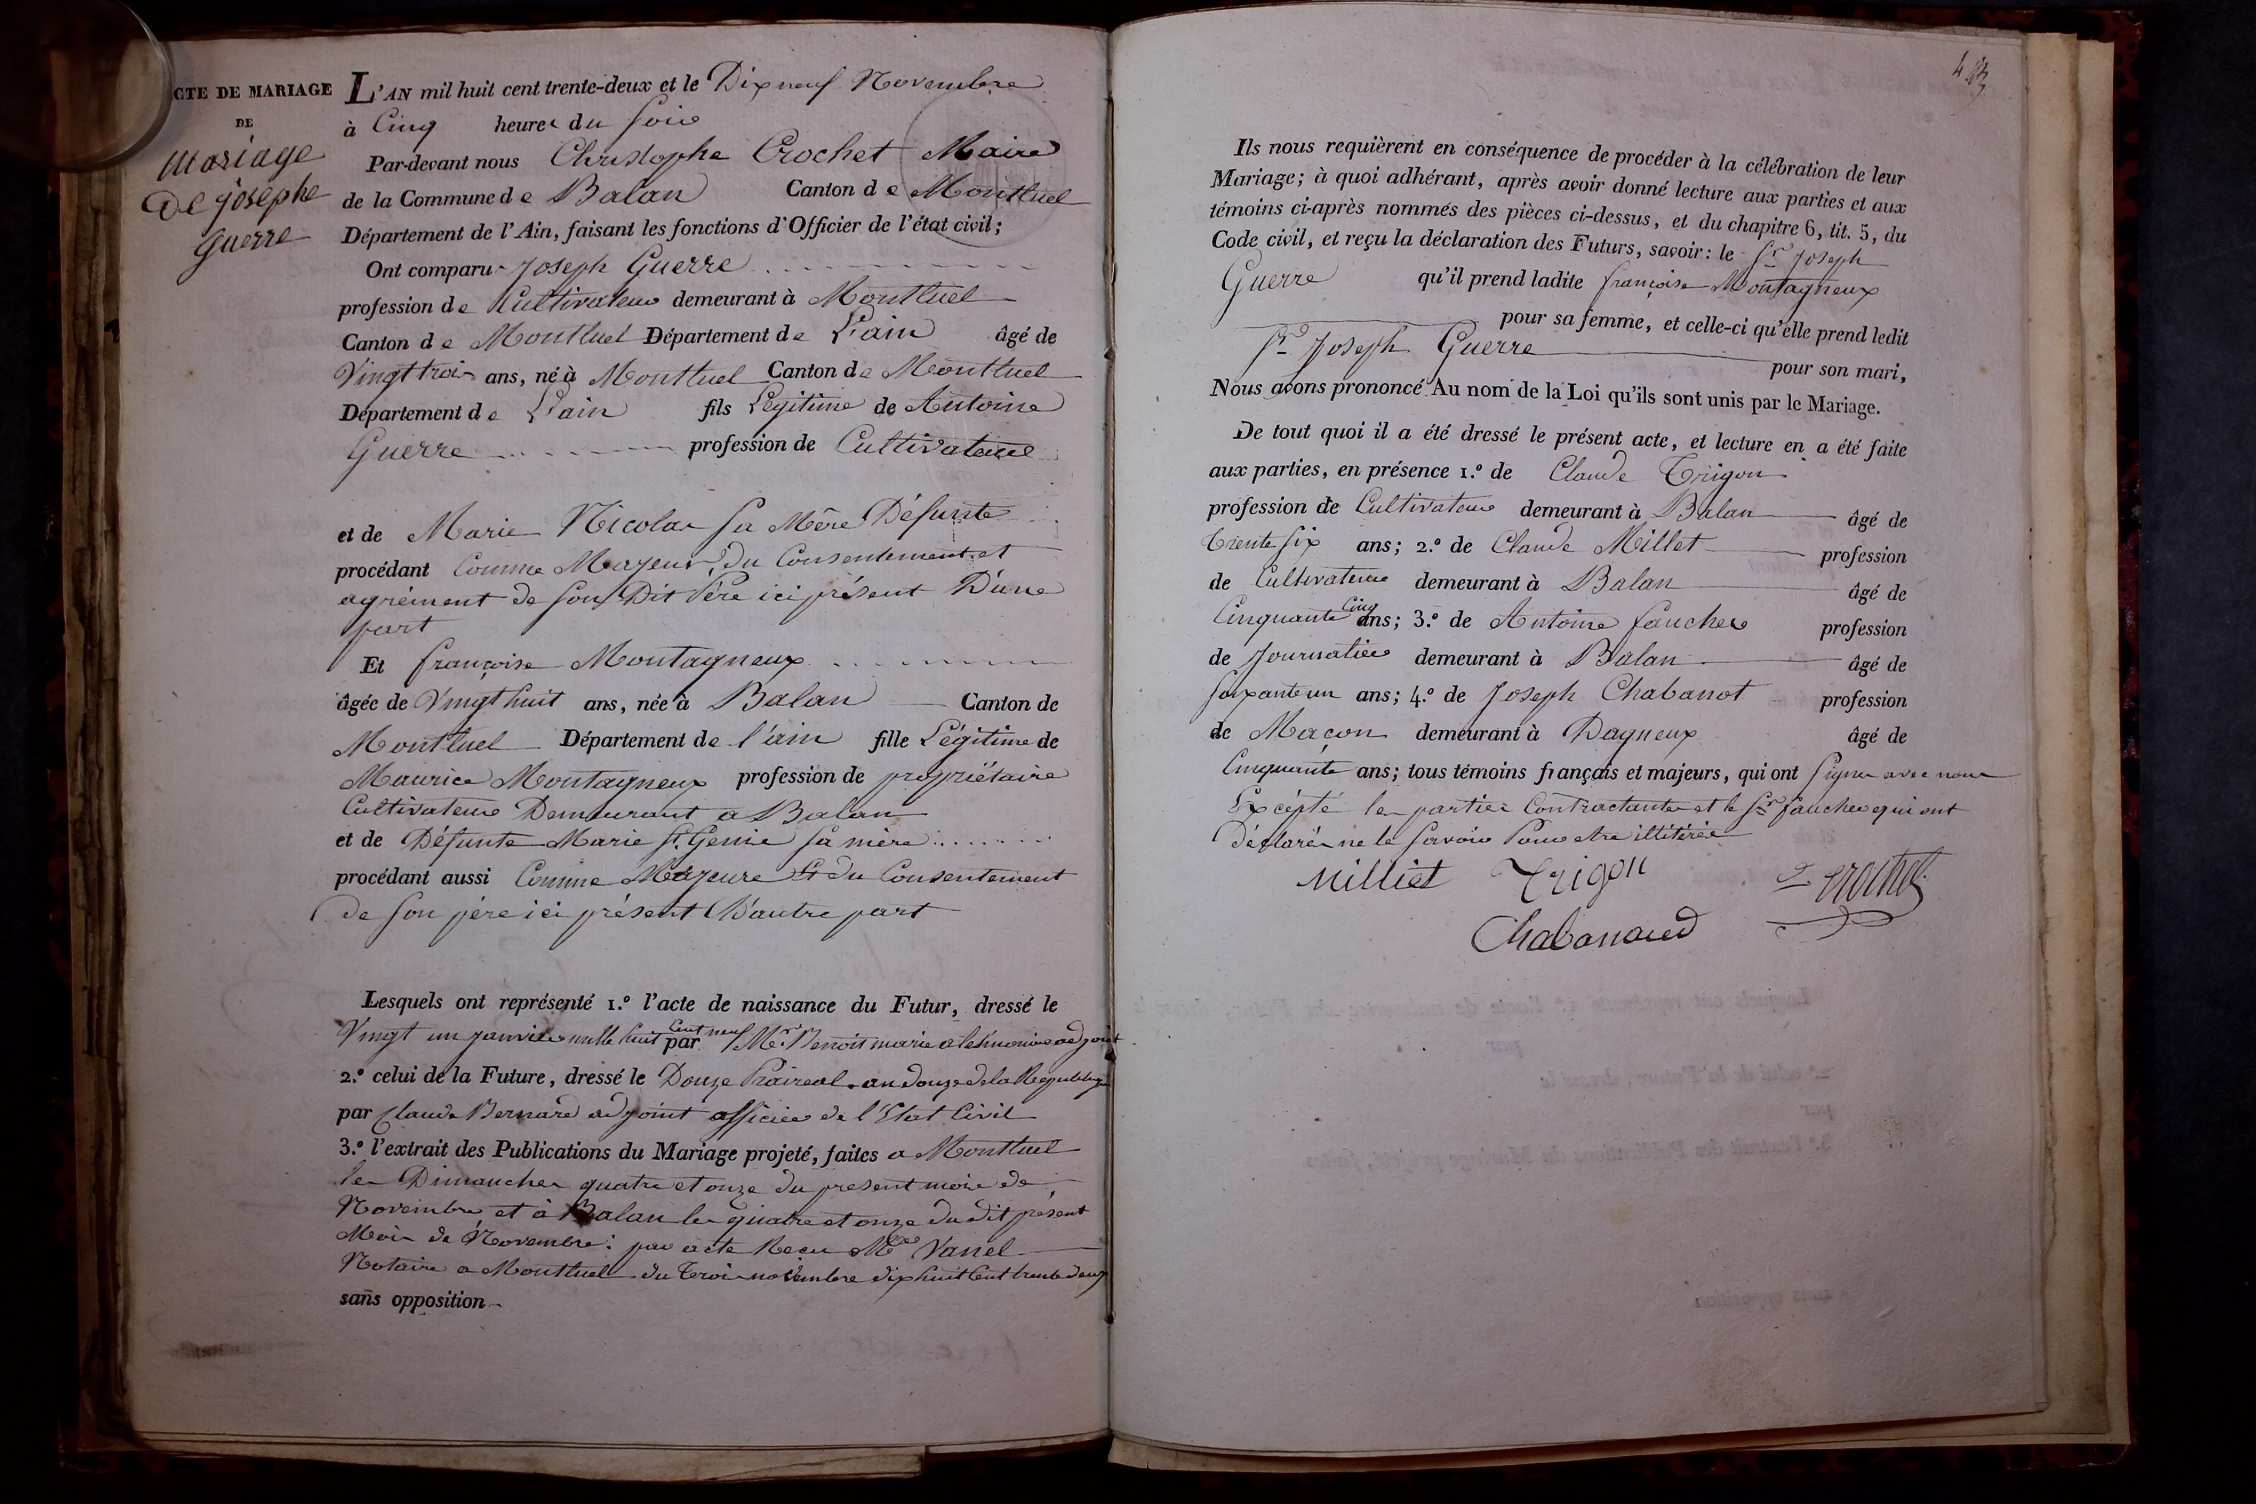 CTE DE MARIAGE
DE
Mariage
De josephe
Guerre
L'AN mil huit cent trente-deux et le Dix neuf Novembre
à Cinq heures du Soir
Par-devant nous Christophe Crochet Maire
de la Commune de Balan Canton de Montluel
Département de l'Ain, faisant les fonctions d'Officier de l'état civil;
Ont comparu Joseph Guerre
profession de Cultivateur demeurant à Montluel
Canton de Montluel Département de L'ain âgé de
Vingt trois ans, né à Montluel Canton de Montluel
Département de L'ain fils Légitime de Antoine
Guerre profession de Cultivateur
et de Marie Nicolas Sa Mère Défunte
procédant Comme Majeur, du Consentement et
agrément de Son Dit Père ici présent D'une
part
Et françoise Montagneux
âgée de Vingt huit ans, née à Balan Canton de
Montluel Département de l'ain fille Légitime de
Maurice Montagneux profession de propriétaire
Cultivateur Demeurant a Balan
et de Défunte Marie St. Genie Sa mère
procédant aussi Comme Majeure Et du Consentement
de Son père ici présent D'autre part
Lesquels ont représenté 1.º l'acte de naissance du Futur, dressé le
Vingt un janvier mille huit Cent neuf par Mr. Benoit marie adjoint
2.º celui de la Future, dressé le Douze Praireal an douze de la Republique
par Claude Bernard adjoint officier de l'Etat Civil
3.º l'extrait des Publications du Mariage projeté, faites a Montluel
les Dimanches quatre et onze du present mois de
Novembre et à Balan les quatre et onze du dit présent
Mois de Novembre: par acte Recu Me Vanel
Notaire a Montluel du Trois novembre dix huit Cent trente deux
sans opposition
Ils nous requièrent en conséquence de procéder à la célébration de leur
Mariage; à quoi adhérant, après avoir donné lecture aux parties et aux
témoins ci-après nommés des pièces ci-dessus, et du chapitre 6, tit. 5, du
Code civil, et reçu la déclaration des Futurs, savoir: le Sr Joseph
Guerre qu'il prend ladite françoise Montagneux
pour sa femme, et celle-ci qu'elle prend ledit
Sr Joseph Guerre
pour son mari,
Nous avons prononcé Au nom de la Loi qu'ils sont unis par le Mariage.
De tout quoi il a été dressé le présent acte, et lecture en a été faite
aux parties, en présence 1.º de Claude Trigon
profession de Cultivateur demeurant à Balan âgé de
Trente Six ans; 2.º de Claude Millet profession
de Cultivateur demeurant à Balan âgé de
Cinquante Cinq ans; 3.º de Antoine faucher profession
de Journalier demeurant à Balan âgé de
Soixante un ans; 4.º de Joseph Chabanot profession
de Maçon demeurant à Dagneux âgé de
Cinquante ans; tous témoins français et majeurs, qui ont Signer avec nous
Excépté les parties Contractantes et le Sr faucher qui ont
Déclarés ne le Savoir Pour etre illitérée
Milliet Trigon Crochet
Chabanaud